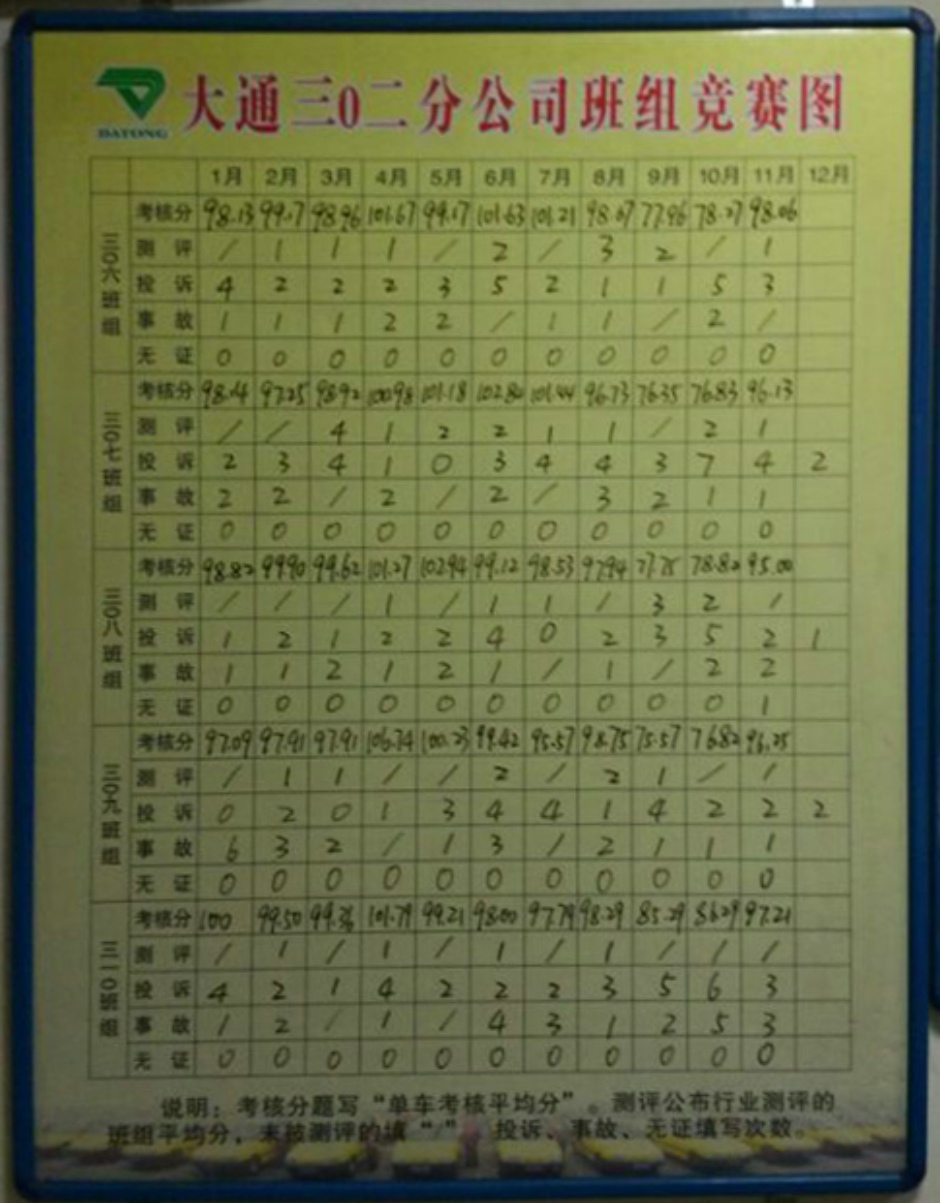 DATONG
大通三0二分公司班组竞赛图
1月 2月 3月 4月 5月 6月 7月 8月 9月 10月 11月 12月
三〇六班组
考核分 98.13 99.17 98.96 101.67 99.17 101.63 101.21 98.07 77.96 78.27 98.06
测评 / 1 1 1 / 2 / 3 2 / 1
投诉 4 2 2 2 3 5 2 1 1 5 3
事故 1 1 1 2 2 / 1 1 / 2 /
无证 0 0 0 0 0 0 0 0 0 0 0
三〇七班组
考核分 98.44 97.25 98.92 100.98 101.18 102.80 101.44 96.73 76.35 76.83 96.13
测评 / / 4 1 2 2 1 1 / 2 1
投诉 2 3 4 1 0 3 4 4 3 7 4 2
事故 2 2 / 2 / 2 / 3 2 1 1
无证 0 0 0 0 0 0 0 0 0 0 0
三〇八班组
考核分 98.82 99.90 99.62 101.27 102.94 99.12 98.53 97.94 77.75 78.82 95.00
测评 / / / 1 / 1 1 / 3 2 /
投诉 1 2 1 2 2 4 0 2 3 5 2 1
事故 1 1 2 1 2 1 / 1 / 2 2
无证 0 0 0 0 0 0 0 0 0 0 1
三〇九班组
考核分 97.09 97.91 97.91 106.74 100.23 99.42 95.57 98.75 75.57 76.82 96.25
测评 / 1 1 / / 2 / 2 1 / /
投诉 0 2 0 1 3 4 4 1 4 2 2 2
事故 6 3 2 / 1 3 / 2 1 1 1
无证 0 0 0 0 0 0 0 0 0 0 0
三一〇班组
考核分 100 99.50 99.36 101.79 99.21 98.00 97.79 98.29 85.29 86.29 97.21
测评 / 1 / 1 / 1 / 1 / / /
投诉 4 2 1 4 2 2 2 3 5 6 3
事故 1 2 / 1 / 4 3 1 2 5 3
无证 0 0 0 0 0 0 0 0 0 0 0
说明：考核分题写“单车考核平均分”。测评公布行业测评的
班组平均分，未被测评的填“/” 投诉、事故、无证填写次数。